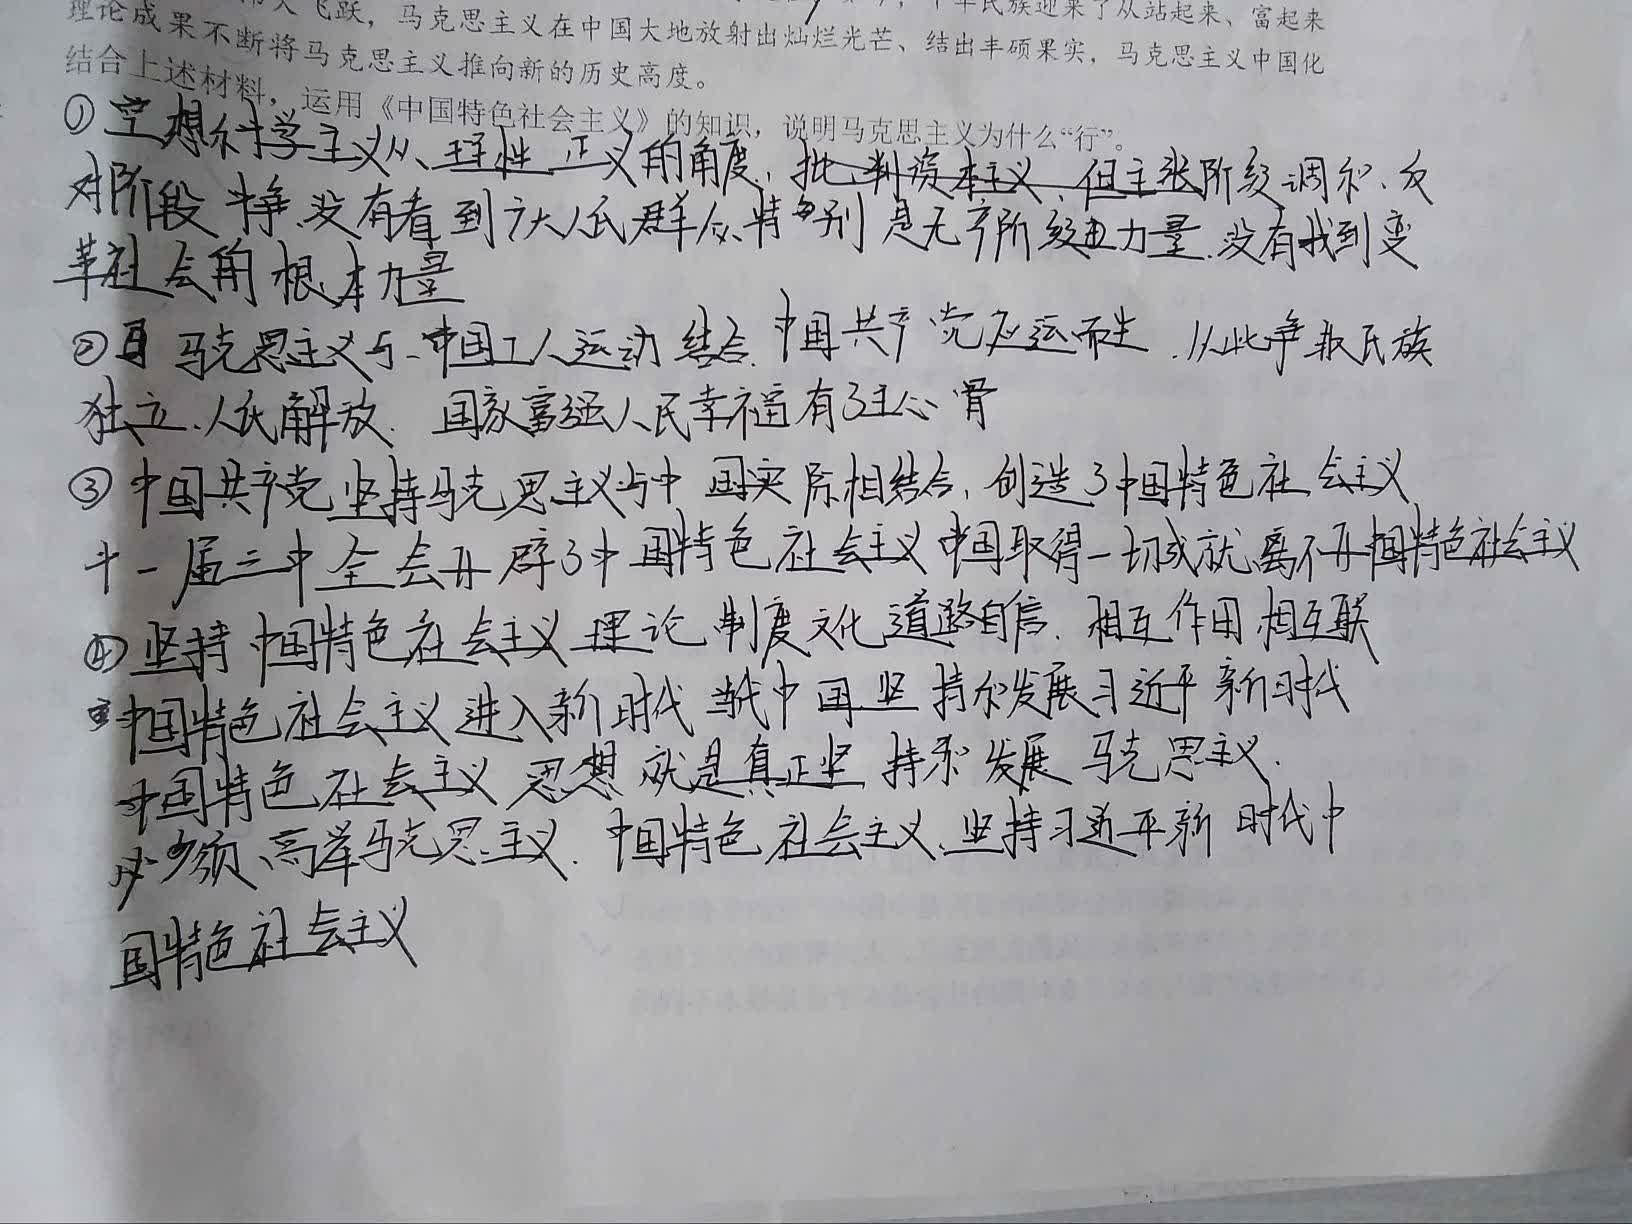 伟大飞跃，马克思主义在中国大地放射出灿烂光芒、结出丰硕果实，马克思主义中国化
中华民族迎来了从站起来、富起来
理论成果不断将马克思主义推向新的历史高度。
结合上述材料，运用《中国特色社会主义》的知识，说明马克思主义为什么“行”。
①空想科学主义从理性正义的角度，批判资本主义，但主张阶级调和、反
对阶段斗争，没有看到广大人民群众特别是无产阶级力量，没有找到变
革社会的根本力量
②马克思主义与中国工人运动结合，中国共产党应运而生，从此争取民族
独立、人民解放、国家富强人民幸福有了主心骨
③中国共产党坚持马克思主义与中国实际相结合，创造了中国特色社会主义
十一届三中全会开辟了中国特色社会主义中国取得一切成就离不开中国特色社会主义
④坚持中国特色社会主义理论制度文化道路自信，相互作用相互联
中国特色社会主义进入新时代当代中国坚持和发展习近平新时代
中国特色社会主义思想就是真正坚持和发展马克思主义.
必须高举马克思主义、中国特色社会主义、坚持习近平新时代中
国特色社会主义